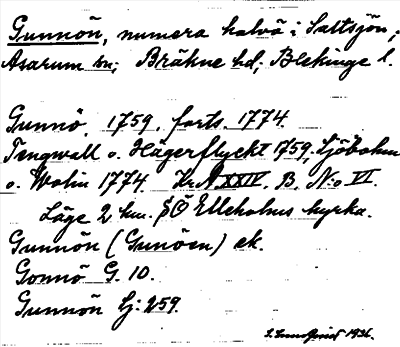 Gunnön, numera halvö i Saltsjön;
Asarum sn; Bräkne hd; Blekinge l.
Gunnö, 1759, forts. 1774.
Tengwall o. Hägerflyckt 1759, Sjöbohm
o. Wolin 1774 Kr.A XXIV, B, No VI.
Läge 2 km. SÖ Elleholms kyrka.
Gunnön (Gunöen) ek.
Gonnö G. 10.
Gunnön Lj: 259.
1936.